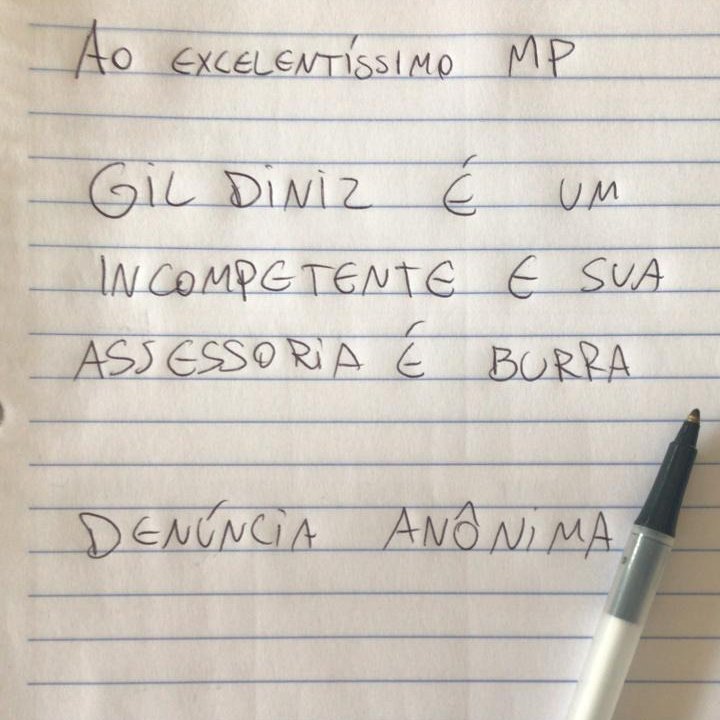 AO EXCELENTÍSSIMO MP
GIL DINIZ É UM
INCOMPETENTE E SUA
ASSESSORIA É BURRA
DENÚNCIA ANÔNIMA